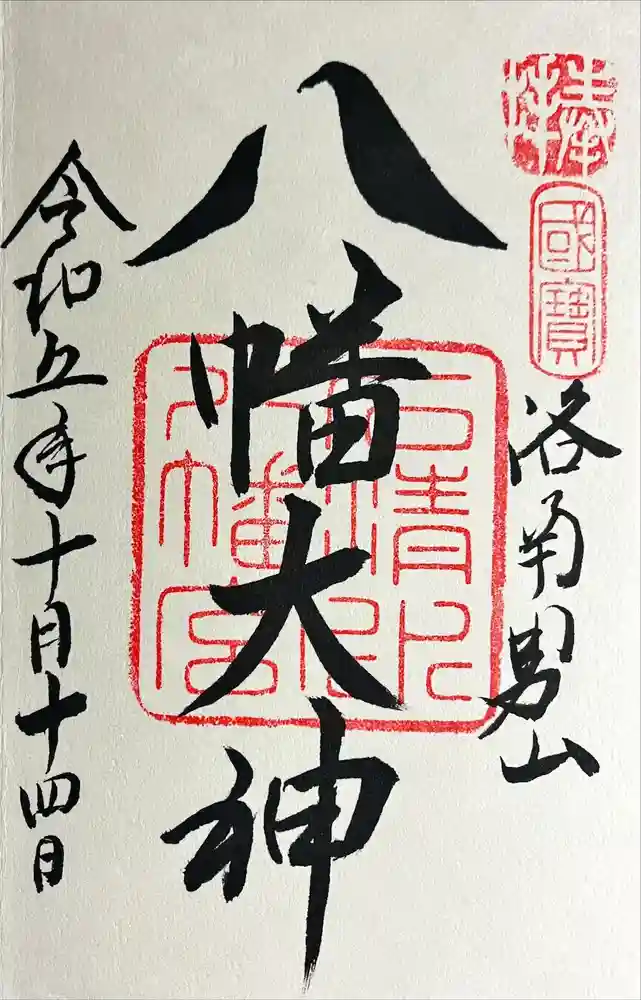 奉拝
國寶
洛南男山
八幡大神
石清水八幡宮印
令和五年十月十四日